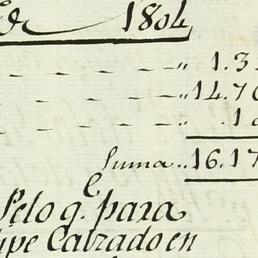 de 1804
1.3
14.70
.1
Suma.. 16.17
Pelo q.e para
ipe Calzado en